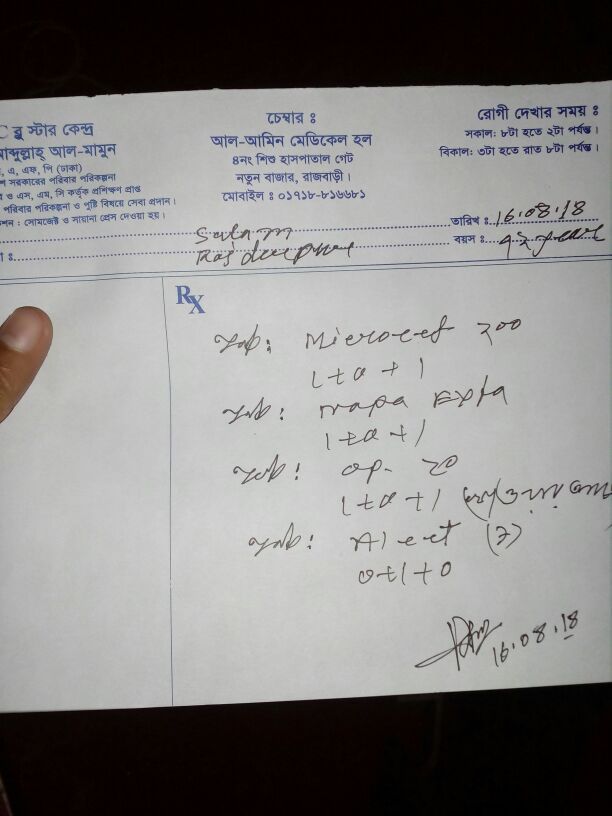 ব্লু স্টার কেন্দ্র
আব্দুল্লাহ্ আল-মামুন
, এ, এফ, পি (ঢাকা)
সরকারের পরিবার পরিকল্পনা
ও এস, এম, সি কর্তৃক প্রশিক্ষণ প্রাপ্ত
পরিবার পরিকল্পনা ও পুষ্টি বিষয়ে সেবা প্রদান।
শন : সোমজেক্ট ও সায়ানা প্রেস দেওয়া হয়।
চেম্বার ঃ
আল-আমিন মেডিকেল হল
৪নং শিশু হাসপাতাল গেট
নতুন বাজার, রাজবাড়ী।
মোবাইল : ০১৭১৮-৮১৬৬৮১
রোগী দেখার সময় ঃ
সকাল: ৮টা হতে ২টা পর্যন্ত।
বিকাল: ৩টা হতে রাত ৮টা পর্যন্ত।
তারিখ ঃ 16.08.18
Salam
বয়স ঃ
Rx
Tab: Microcef 200
1+0+1
Tab: Napa Extra
1+0+1
Tab: op- 20
1+0+1
Tab: Alect (7)
0+1+0
16.08.18